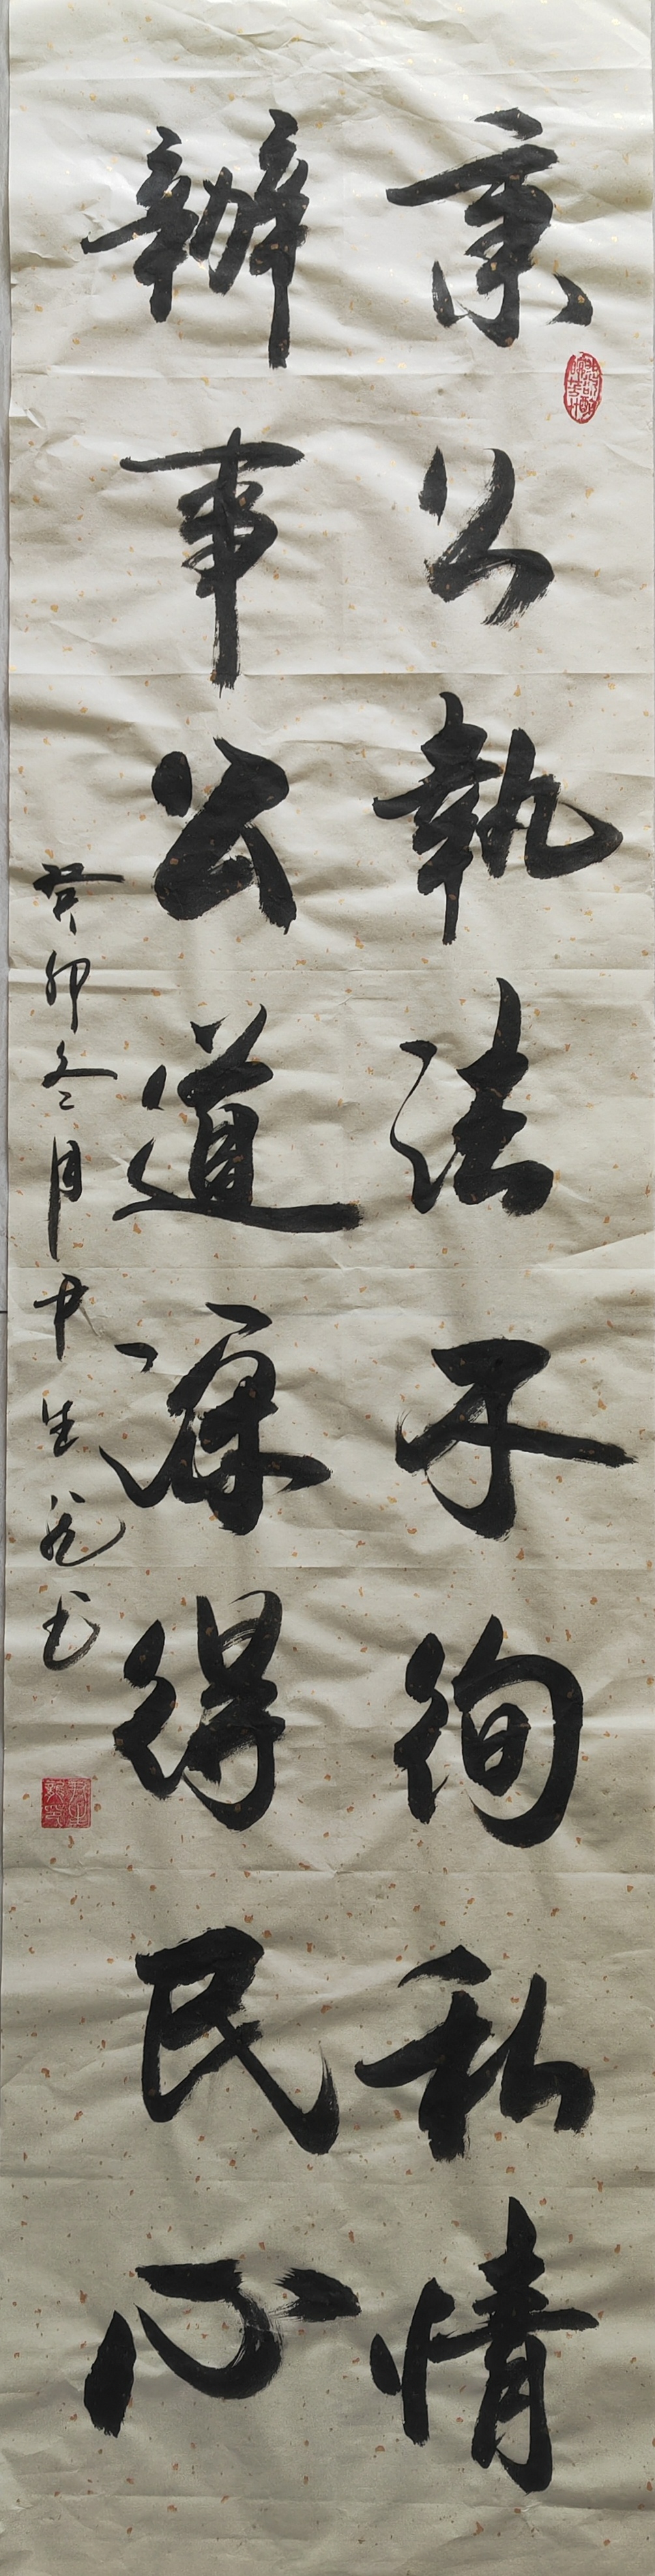 秉公執法不徇私情
辦事公道深得民心
癸卯冬月中生龙书